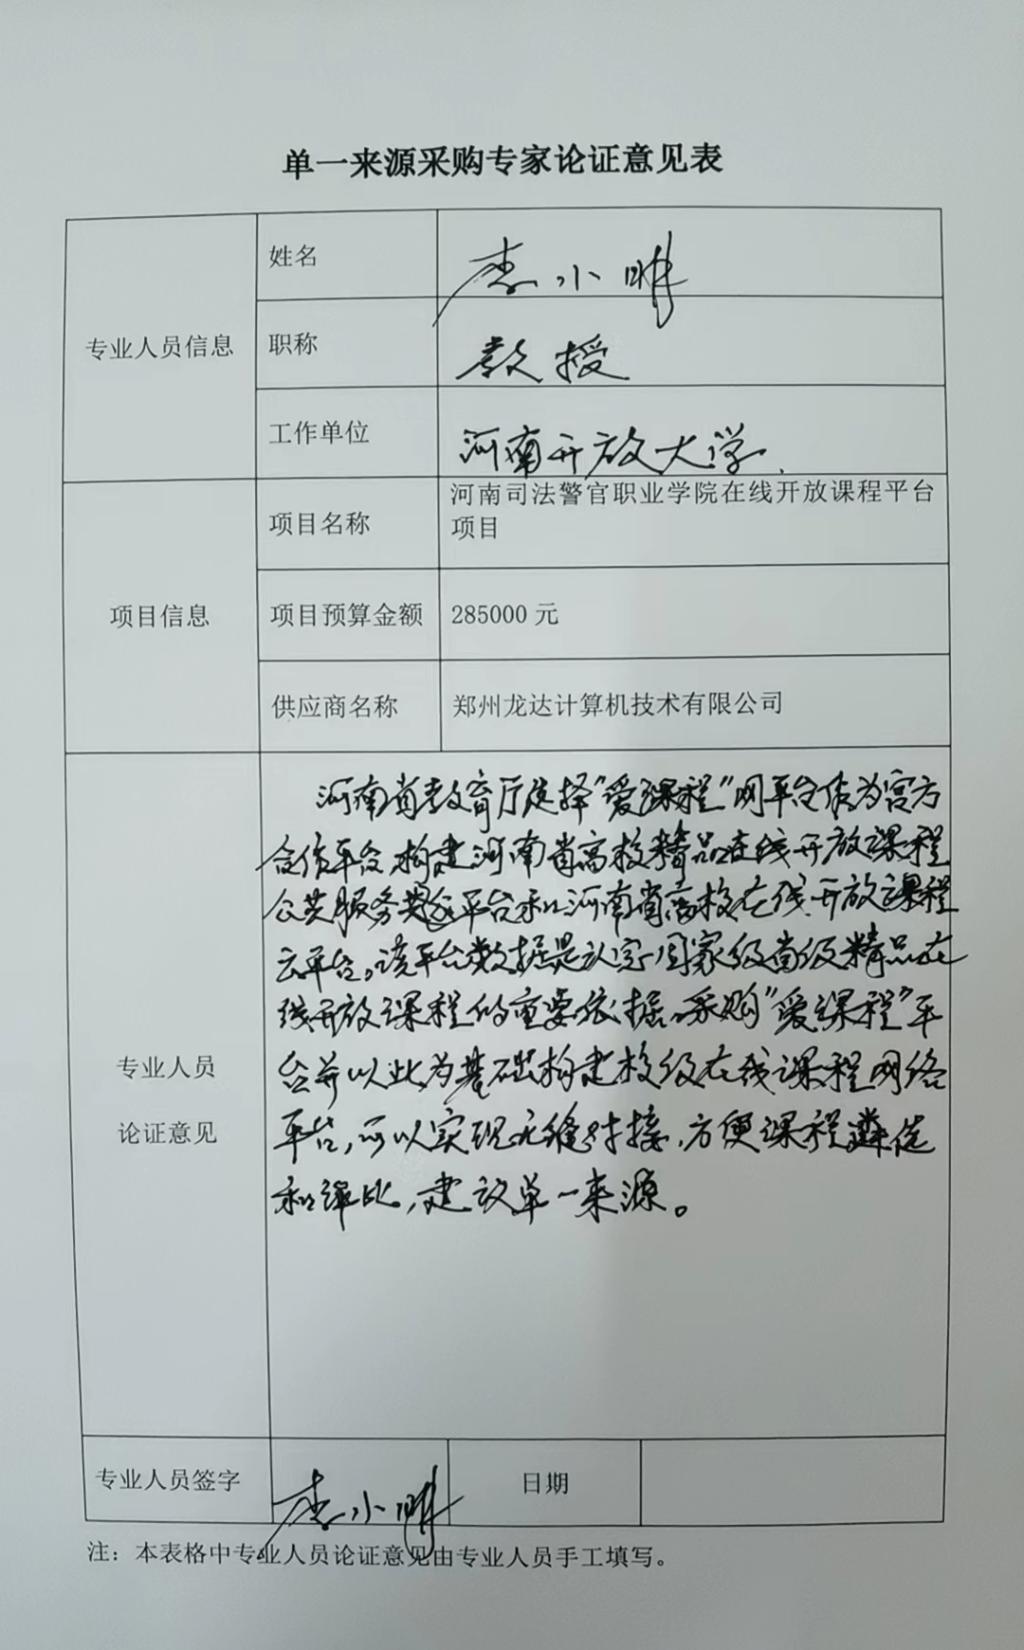 单一来源采购专家论证意见表
专业人员信息
姓名
李小明
职称
教授
工作单位
河南开放大学
项目信息
项目名称
河南司法警官职业学院在线开放课程平台
项目
项目预算金额
285000 元
供应商名称
郑州龙达计算机技术有限公司
专业人员
论证意见
河南省教育厅选择“爱课程”网平台作为官方
合作平台,构建河南省高校精品在线开放课程
公共服务平台和河南省高校在线开放课程
云平台。该平台数据是认定国家级省级精品在
线开放课程的重要依据。采购“爱课程”平
台并以此为基础构建校级在线课程网络
平台,可以实现无缝对接,方便课程遴选
和评比,建议单一来源。
专业人员签字
李小明
日期
注：本表格中专业人员论证意见由专业人员手工填写。